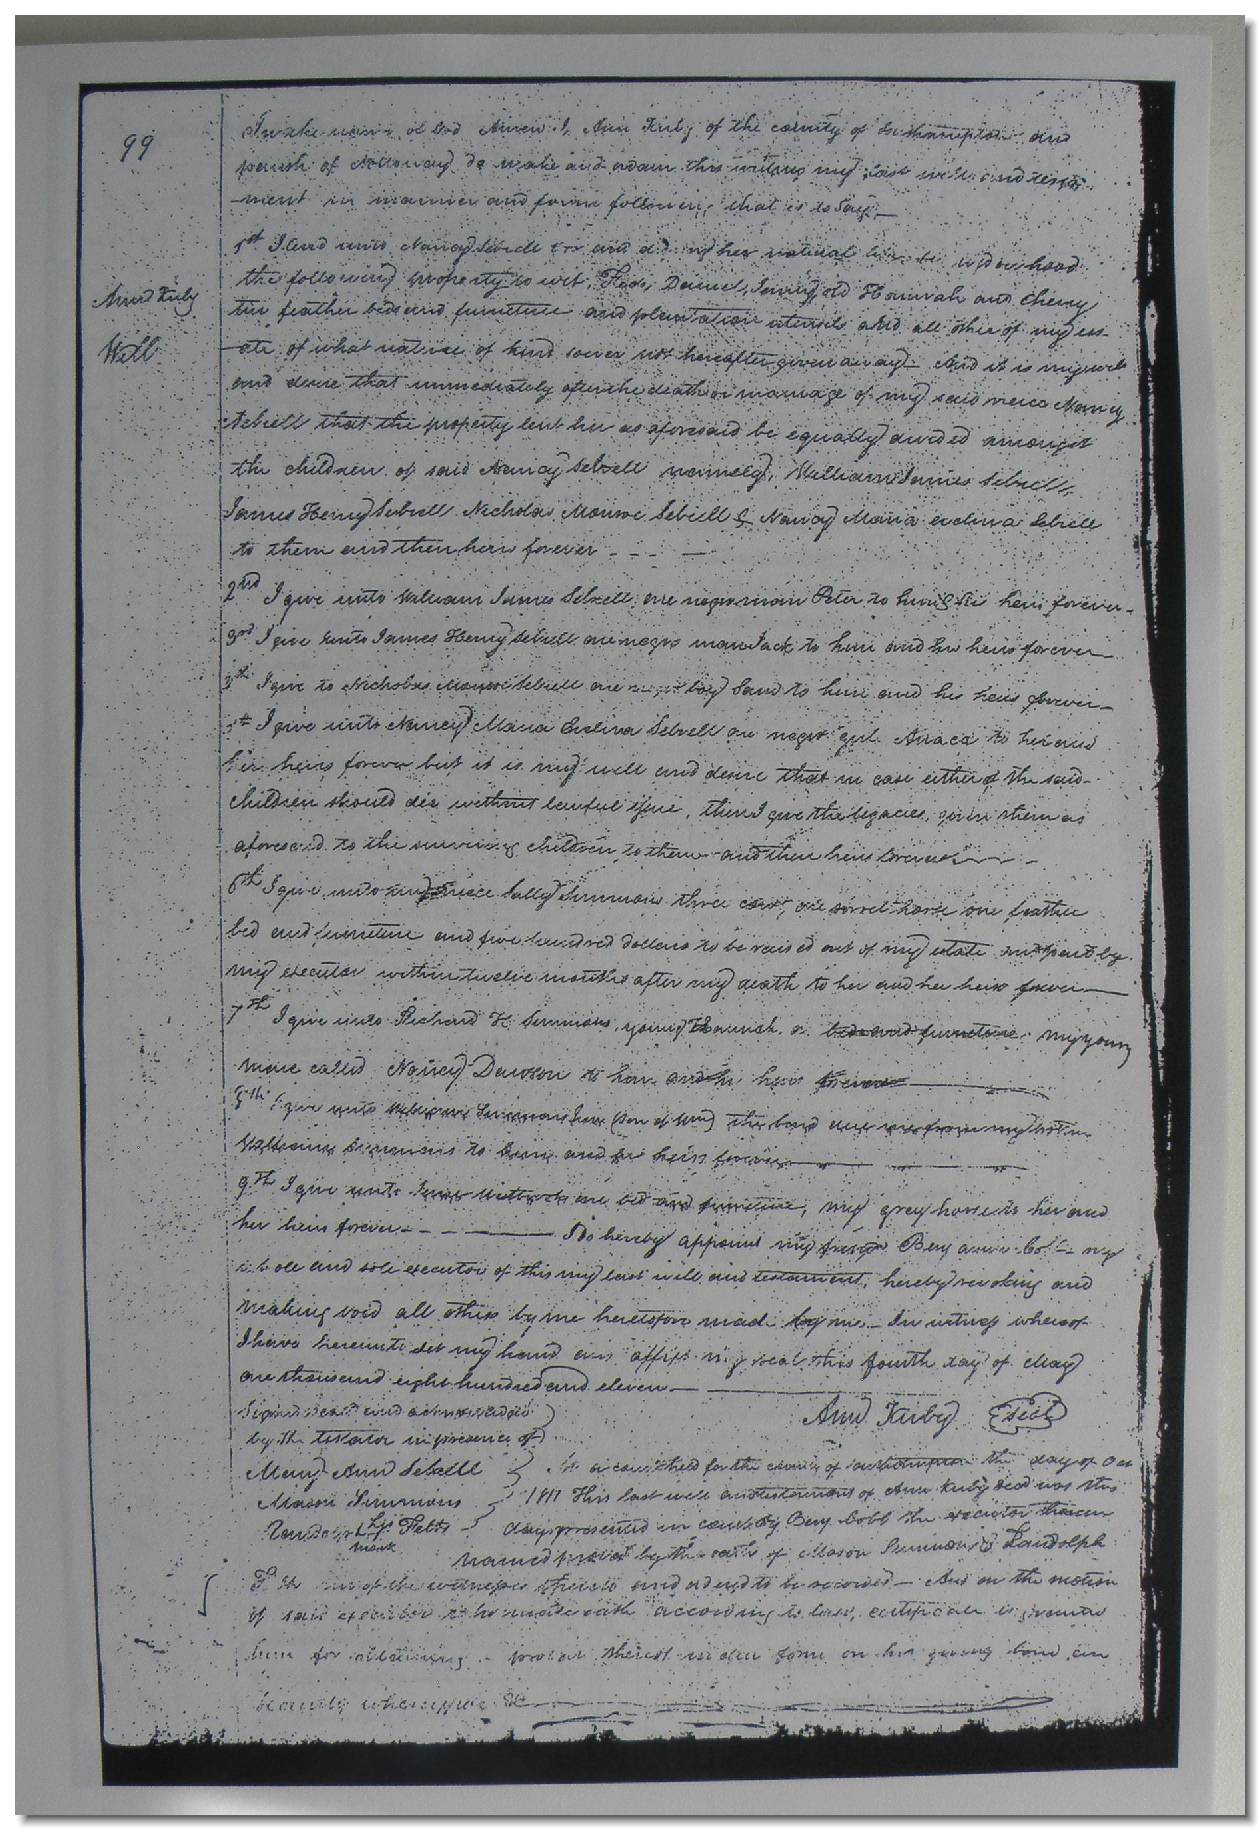 99
In the name of God Amen I, Ann Kirby of the county of Southampton and
parish of Nottoway do make and this writing my last will and testa-
-ment in manner and form following that is to Say,—
1st I lend unto Nancy Sebrell her natural life or widowhood
the following property to wit, Daniel, old Hannah and Cherry
Ann Kirby
ten feather beds and furniture and plantation utensils and all other of my es-
Will
-ate of what nature of kind soever not hereafter given away— And it is my will
and desire that immediately after the death or marriage of my said niece Nancy
Sebrell that the property lent her as aforesaid be equally divided amongst
the children of said Nancy Sebrell namely, William James Sebrell,
James Henry Sebrell Nicholas Monroe Sebrell & Nancy Maria evelina Sebrell
to them and their heirs forever - - - —
2nd I give unto William James Sebrell one negro man Peter to him & his heirs forever-
3rd I give unto James Henry Sebrell one negro man Jack to him and his heirs forever—
I give to Nicholas Monroe Sebrell one negro boy to him and his heirs forever—
5th I give unto Nancy Maria Evelina Sebrell one negro girl to her and
her heirs forever but it is my will and desire that in case either of the said
children should die without lawful issue, then I give the legacies, given them as
aforesaid to the surviving children to them and their heirs forever
6th I give unto my niece Sally Simmons three cows, one sorrel horse one feather
bed and furniture and five hundred dollars to be raised out of my estate paid by
my executor within twelve months after my death to her and her heirs forever—
7th I give unto Richard H Simmons, young bed and furniture my young
mare called Nancy Dawson to him and his heirs forever
8th I give unto William Simmons (son of Wm) the bond due me from
William Simmons to him and his heirs forever
9th I give unto one bed and furniture, my grey horse to her and
her heirs forever - - - — I do hereby appoint my Benjamin Cobb my
whole and sole executor of this my last will and testament, hereby revoking and
making void all others by me heretofore made by me— In witness whereof
I have hereunto set my hand and affixt my seal this fourth day of May
one thousand eight hundred and eleven—
Signed Sealed and acknowledged
Ann Kirby Seal
by the testator in presence of
Mary Ann Sebrell
Mason Simmons
mark
At a court held for the county of Southampton the day of
1811 This last will and testament of Ann Kirby decd was this
day presented in court by Benj Cobb the executor therein
named proved by the oath of Mason Simmons & Randolph
of the witnesses thereto and ordered to be recorded— And on the motion
of said executor who made oath according to law, certificate is granted
him for obtaining a probat thereof in due form on his giving bond and
security whereupon &c